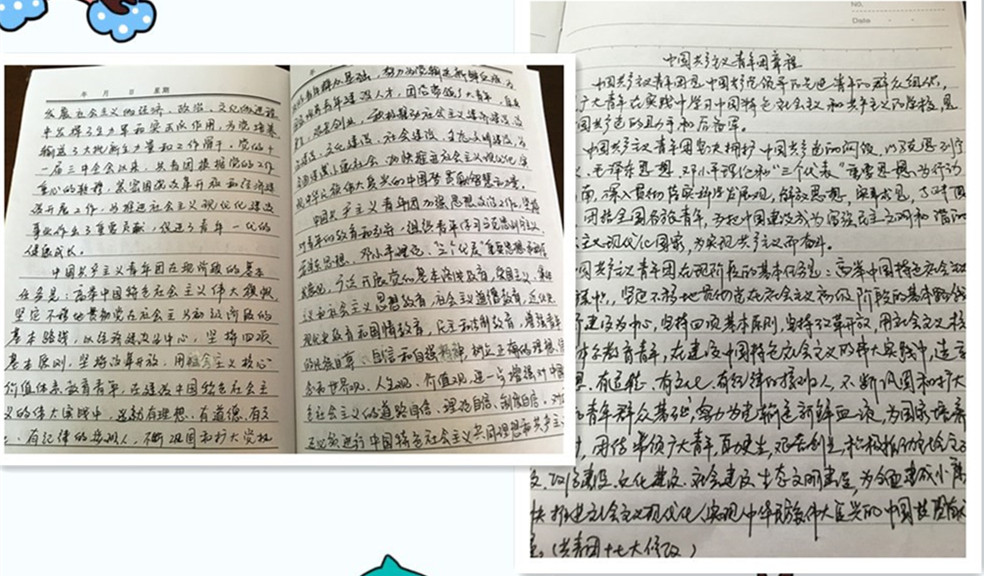 年 月 日 星期
发展社会主义的经济、政治、文化的进程
中发挥了生力军和突击队作用,为党培养
输送了大批新生力量和工作骨干。党的十
一届三中全会以来,共青团根据党的工作
重心的转移,紧密围绕改革开放和经济建
设开展工作,为推进社会主义现代化建设
事业作出了重要贡献,促进了青年一代的
健康成长。
中国共产主义青年团在现阶段的基本
任务是:高举中国特色社会主义伟大旗帜,
坚定不移地贯彻党在社会主义初级阶段的
基本路线,以经济建设为中心,坚持四项
基本原则,坚持改革开放,用社会主义核心
价值体系教育青年,在建设中国特色社会主
义的伟大实践中,造就有理想、有道德、有文
、有纪律的接班人,不断巩固和扩大党执
年
青年群众基础,努力为党输送新鲜血液,为
国家培养青年建设人才,团结带领广大青年,自力
更生,艰苦创业,积极推动社会主义经济建设、政
治建设、文化建设、社会建设、生态文明建设,为
全面建成小康社会、加快推进社会主义现代化、实
现中华民族伟大复兴的中国梦贡献智慧和力量。
中国共产主义青年团加强思想政治工作,坚持
对青年的教育和引导,组织青年学习马克思列宁主义、
毛泽东思想、邓小平理论、“三个代表”重要思想和科学
发展观,广泛开展党的基本路线教育,爱国主义、集体
主义和社会主义思想教育,社会主义道德教育,近代史
现代史教育和国情教育,民主和法制教育,增强青年
的民族自尊、自信和自强精神,树立正确的理想、信
念和世界观、人生观、价值观,进一步增强对中国
特色社会主义的道路自信、理论自信、制度自信,对
进行中国特色社会主义共同理想和共产主义
No.
Date
中国共产主义青年团章程
中国共产主义青年团是中国共产党领导的先进青年的群众组织,
广大青年在实践中学习中国特色社会主义和共产主义的学校,是
国共产党的助手和后备军。
中国共产主义青年团坚决拥护中国共产党的纲领,以马克思列宁
、毛泽东思想、邓小平理论和“三个代表”重要思想为行动
南,深入贯彻落实科学发展观,解放思想,实事求是,与时俱
团结全国各族青年,为把中国建设成为富强民主文明和谐的
主义现代化国家,为实现共产主义而奋斗。
国共产主义青年团在现阶段的基本任务是:高举中国特色社会主
旗帜,坚定不移地贯彻党在社会主义初级阶段的基本路线
济建设为中心,坚持四项基本原则,坚持改革开放,用社会主义核
体系教育青年,在建设中国特色社会主义的伟大实践中,造就
想、有道德、有文化、有纪律的接班人,不断巩固和扩大
青年群众基础,努力为党输送新鲜血液,为国家培养
,团结带领广大青年,自力更生,艰苦创业,积极推动社会主义
设、政治建设、文化建设、社会建设、生态文明建设,为全面建成小康
快推进社会主义现代化、实现中华民族伟大复兴的中国梦贡献
量。(共青团十七大修改)